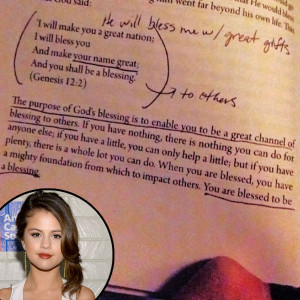 God said:
went far beyond his own life. This
He will bless me w/ great gifts
'I will make you a great nation;
I will bless you
And make your name great;
And you shall be a blessing.
(Genesis 12:2)
to others
The purpose of God's blessing is to enable you to be a great channel of
blessing to others. If you have nothing, there is nothing you can do for
anyone else; if you have a little, you can only help a little; but if you have
plenty, there is a whole lot you can do. When you are blessed, you have
a mighty foundation from which to impact others. You are blessed to be
a blessing.